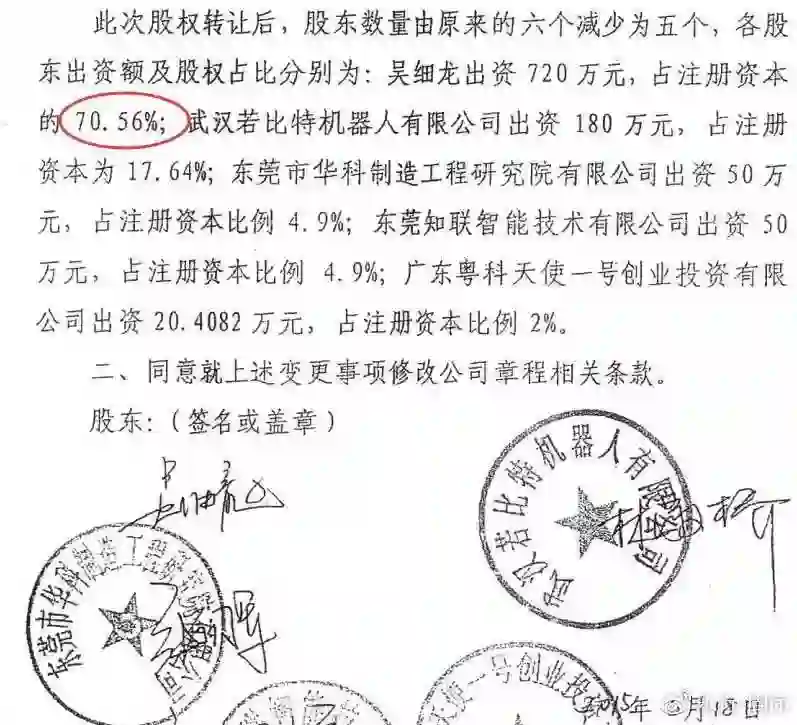 此次股权转让后，股东数量由原来的六个减少为五个，各股
东出资额及股权占比分别为：吴细龙出资 720 万元，占注册资本
的 70.56%；武汉若比特机器人有限公司出资 180 万元，占注册
资本为 17.64%；东莞市华科制造工程研究院有限公司出资 50 万
元，占注册资本比例 4.9%；东莞知联智能技术有限公司出资 50
万元，占注册资本比例 4.9%；广东粤科天使一号创业投资有限
公司出资 20.4082 万元，占注册资本比例 2%。
二、同意就上述变更事项修改公司章程相关条款。
股东：（签名或盖章）
武汉若比特机器人有限公司
东莞市华科制造工程研究院
天使一号创业投
2015年 月18日